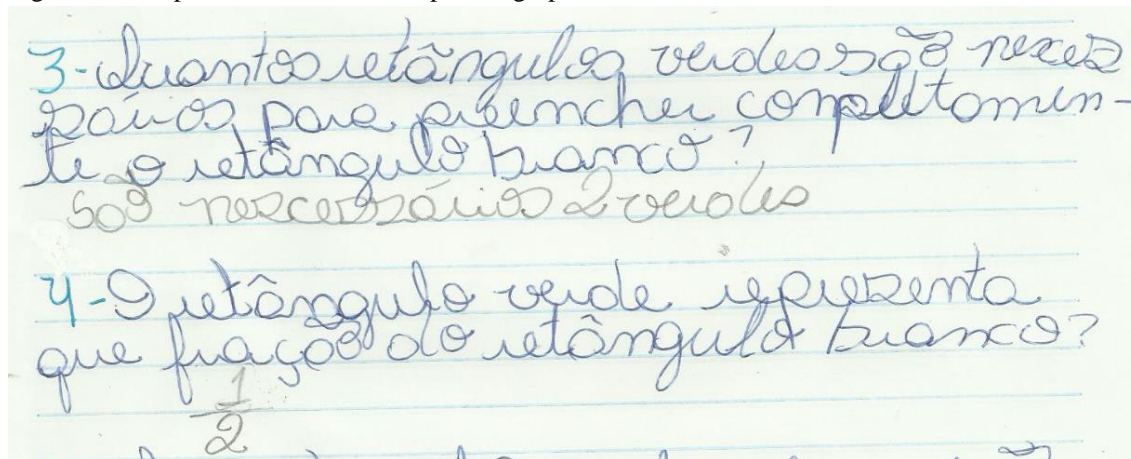 3-Quantos retângulos verdes são neces
sários para preencher completamen-
te o retângulo branco?
São nescessários 2 verdes
4-O retângulo verde representa
que fração do retângulo branco?
1
2